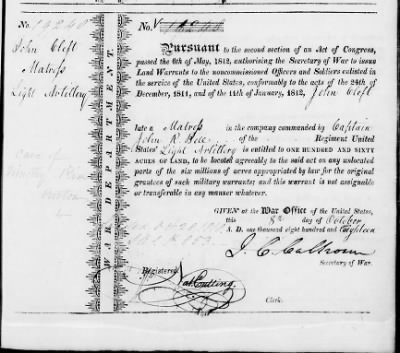 No. 19240
John Cloft
Matross
Light Artillery
care of
WAR DEPARTMENT.
No.
Pursuant to the second section of an Act of Congress,
passed the 6th of May, 1812, authorising the Secretary of War to issue
Land Warrants to the noncommissioned Officers and Soldiers enlisted in
the service of the United States, conformably to the acts of the 24th of
December, 1811, and of the 11th of January, 1812, John Cloft
late a Matross in the company commanded by Captain
John R. Bell of the Regiment United
States' Light Artillery is entitled to ONE HUNDRED AND SIXTY
ACRES OF LAND, to be located agreeably to the said act on any unlocated
parts of the six millions of acres appropriated by law for the original
grantees of such military warrants; and this warrant is not assignable
or transferable in any manner whatever.
GIVEN at the War Office of the United States,
this 8th day of October
A. D. one thousand eight hundred and Eighteen
J. C. Calhoun
Secretary of War.
Registered
Nat Cutting
Clerk.